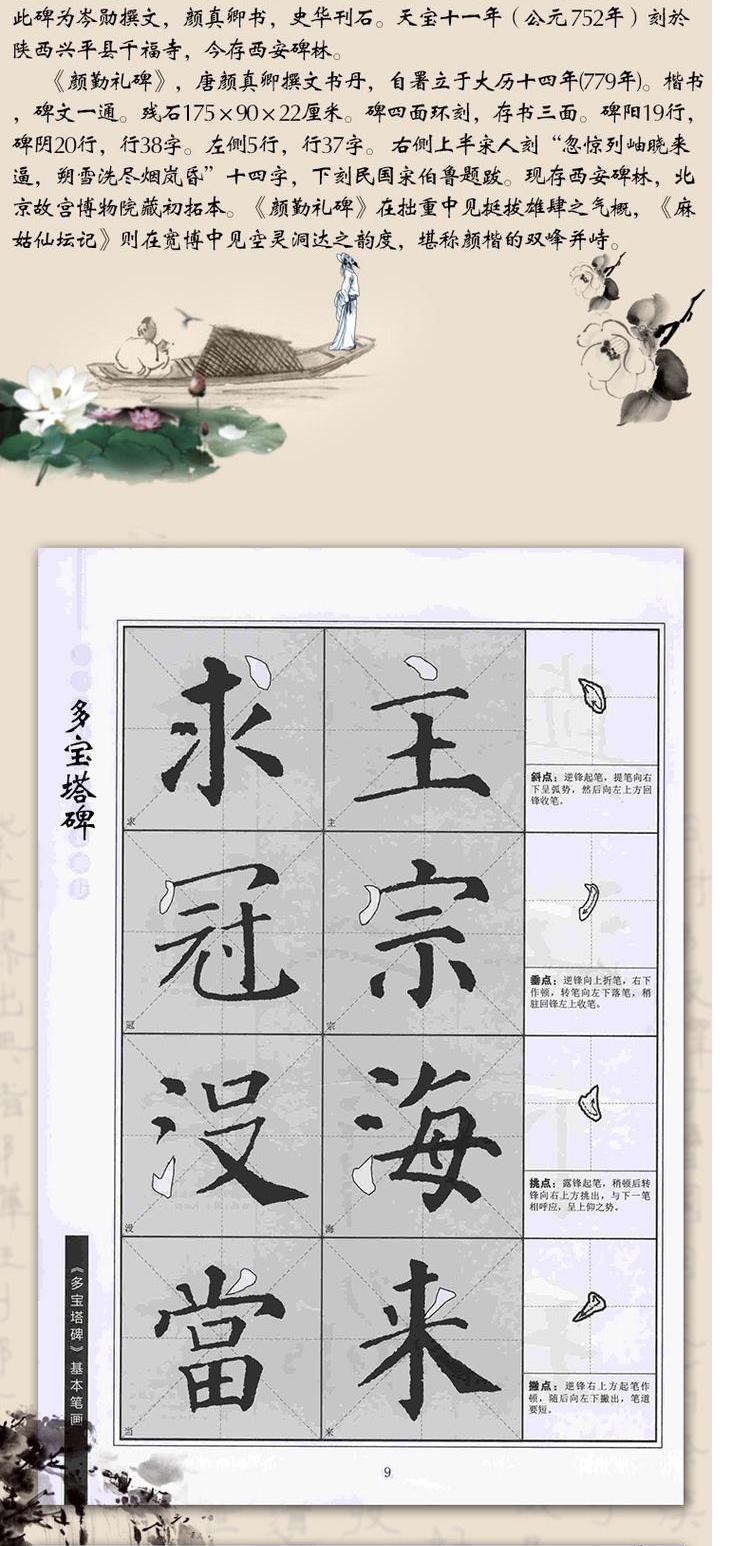 此碑为岑勋撰文，颜真卿书，史华刊石。天宝十一年（公元752年）刻於
陕西兴平县千福寺，今存西安碑林。
《颜勤礼碑》，唐颜真卿撰文书丹，自署立于大历十四年(779年)。楷书
，碑文一通。残石175×90×22厘米。碑四面环刻，存书三面。碑阳19行，
碑阴20行，行38字。左侧5行，行37字。右侧上半宋人刻“忽惊列岫晓来
逼，朔雪洗尽烟岚昏”十四字，下刻民国宋伯鲁题跋。现存西安碑林，北
京故宫博物院藏初拓本。《颜勤礼碑》在拙重中见挺拔雄肆之气概，《麻
姑仙坛记》则在宽博中见空灵洞达之韵度，堪称颜楷的双峰并峙。
多宝塔碑
求
求
主
主
斜点：逆锋起笔，提笔向右
下呈弧势，然后向左上方回
锋收笔。
冠
冠
宗
宗
垂点：逆锋向上折笔，右下
作顿，转笔向左下落笔，稍
驻回锋左上收笔。
没
没
海
海
挑点：露锋起笔，稍顿后转
锋向右上方挑出，与下一笔
相呼应，呈上仰之势。
當
当
来
来
撇点：逆锋右上方起笔作
顿，随后向左下撇出，笔道
要短。
《多宝塔碑》基本笔画
9